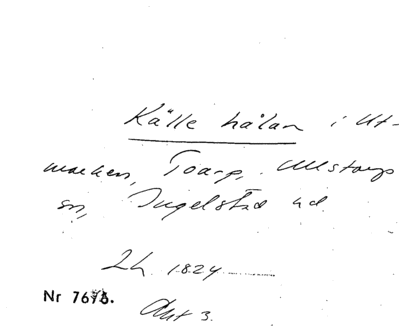 Källe hålan i Ut-
marken, Toarp, Ullstorps
sn, Ingelstad hd.
Lh 1824
Nr 7675.
Akt 3.